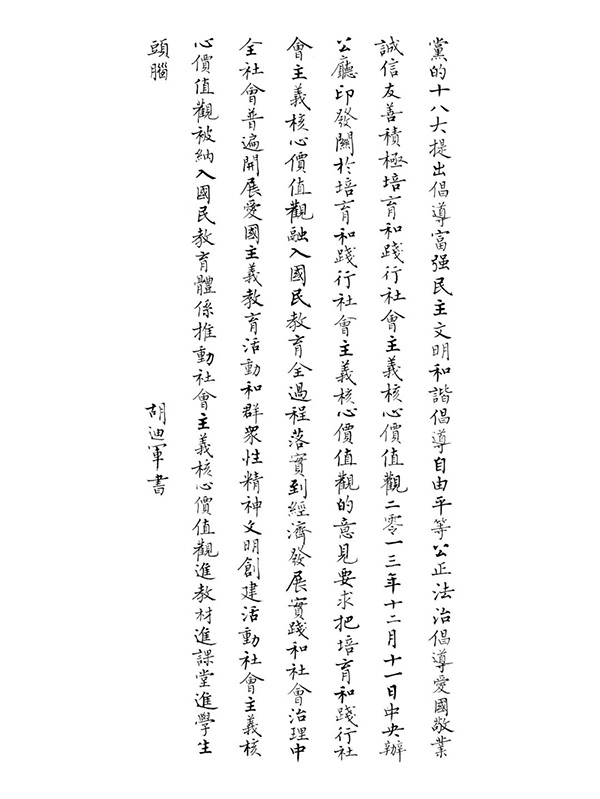 黨的十八大提出倡導富强民主文明和諧倡導自由平等公正法治倡導愛國敬業
誠信友善積極培育和踐行社會主義核心價值觀二零一三年十二月十一日中央辦
公廳印發關於培育和踐行社會主義核心價值觀的意見要求把培育和踐行社
會主義核心價值觀融入國民教育全過程落實到經濟發展實踐和社會治理中
全社會普遍開展愛國主義教育活動和群衆性精神文明創建活動社會主義核
心價值觀被納入國民教育體係推動社會主義核心價值觀進教材進課堂進學生
頭腦
胡迪軍書